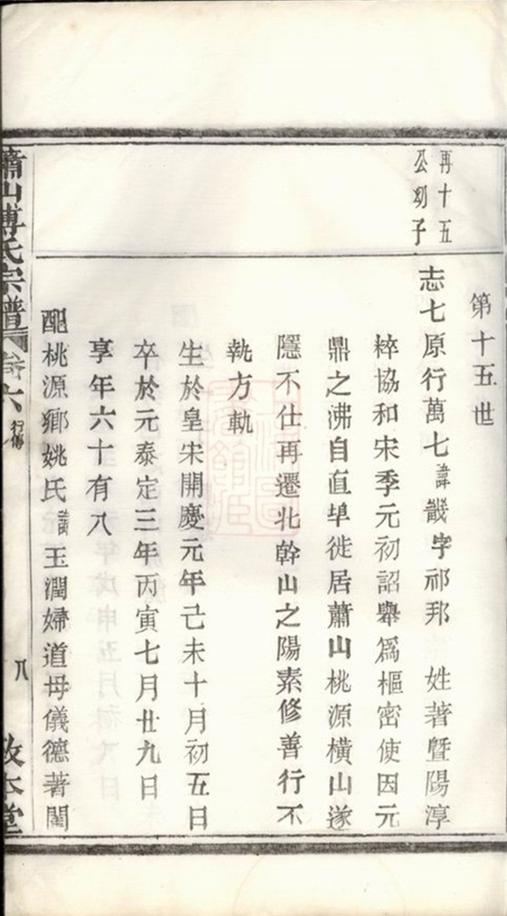 再十五
公幼子
第十五世
志七原行萬七諱畿字祁邦 姓著暨陽淳
粹協和宋季元初詔舉爲樞密使因元
鼎之沸自直阜徙居蕭山桃源橫山遂
隱不仕再遷北幹山之陽素修善行不
執方軌
生於皇宋開慶元年己未十月初五日
卒於元泰定三年丙寅七月廿九日
享年六十有八
配桃源鄉姚氏諱玉潤婦道母儀德著閨
蕭山傅氏宗譜 卷六 行傳
八
敦本堂